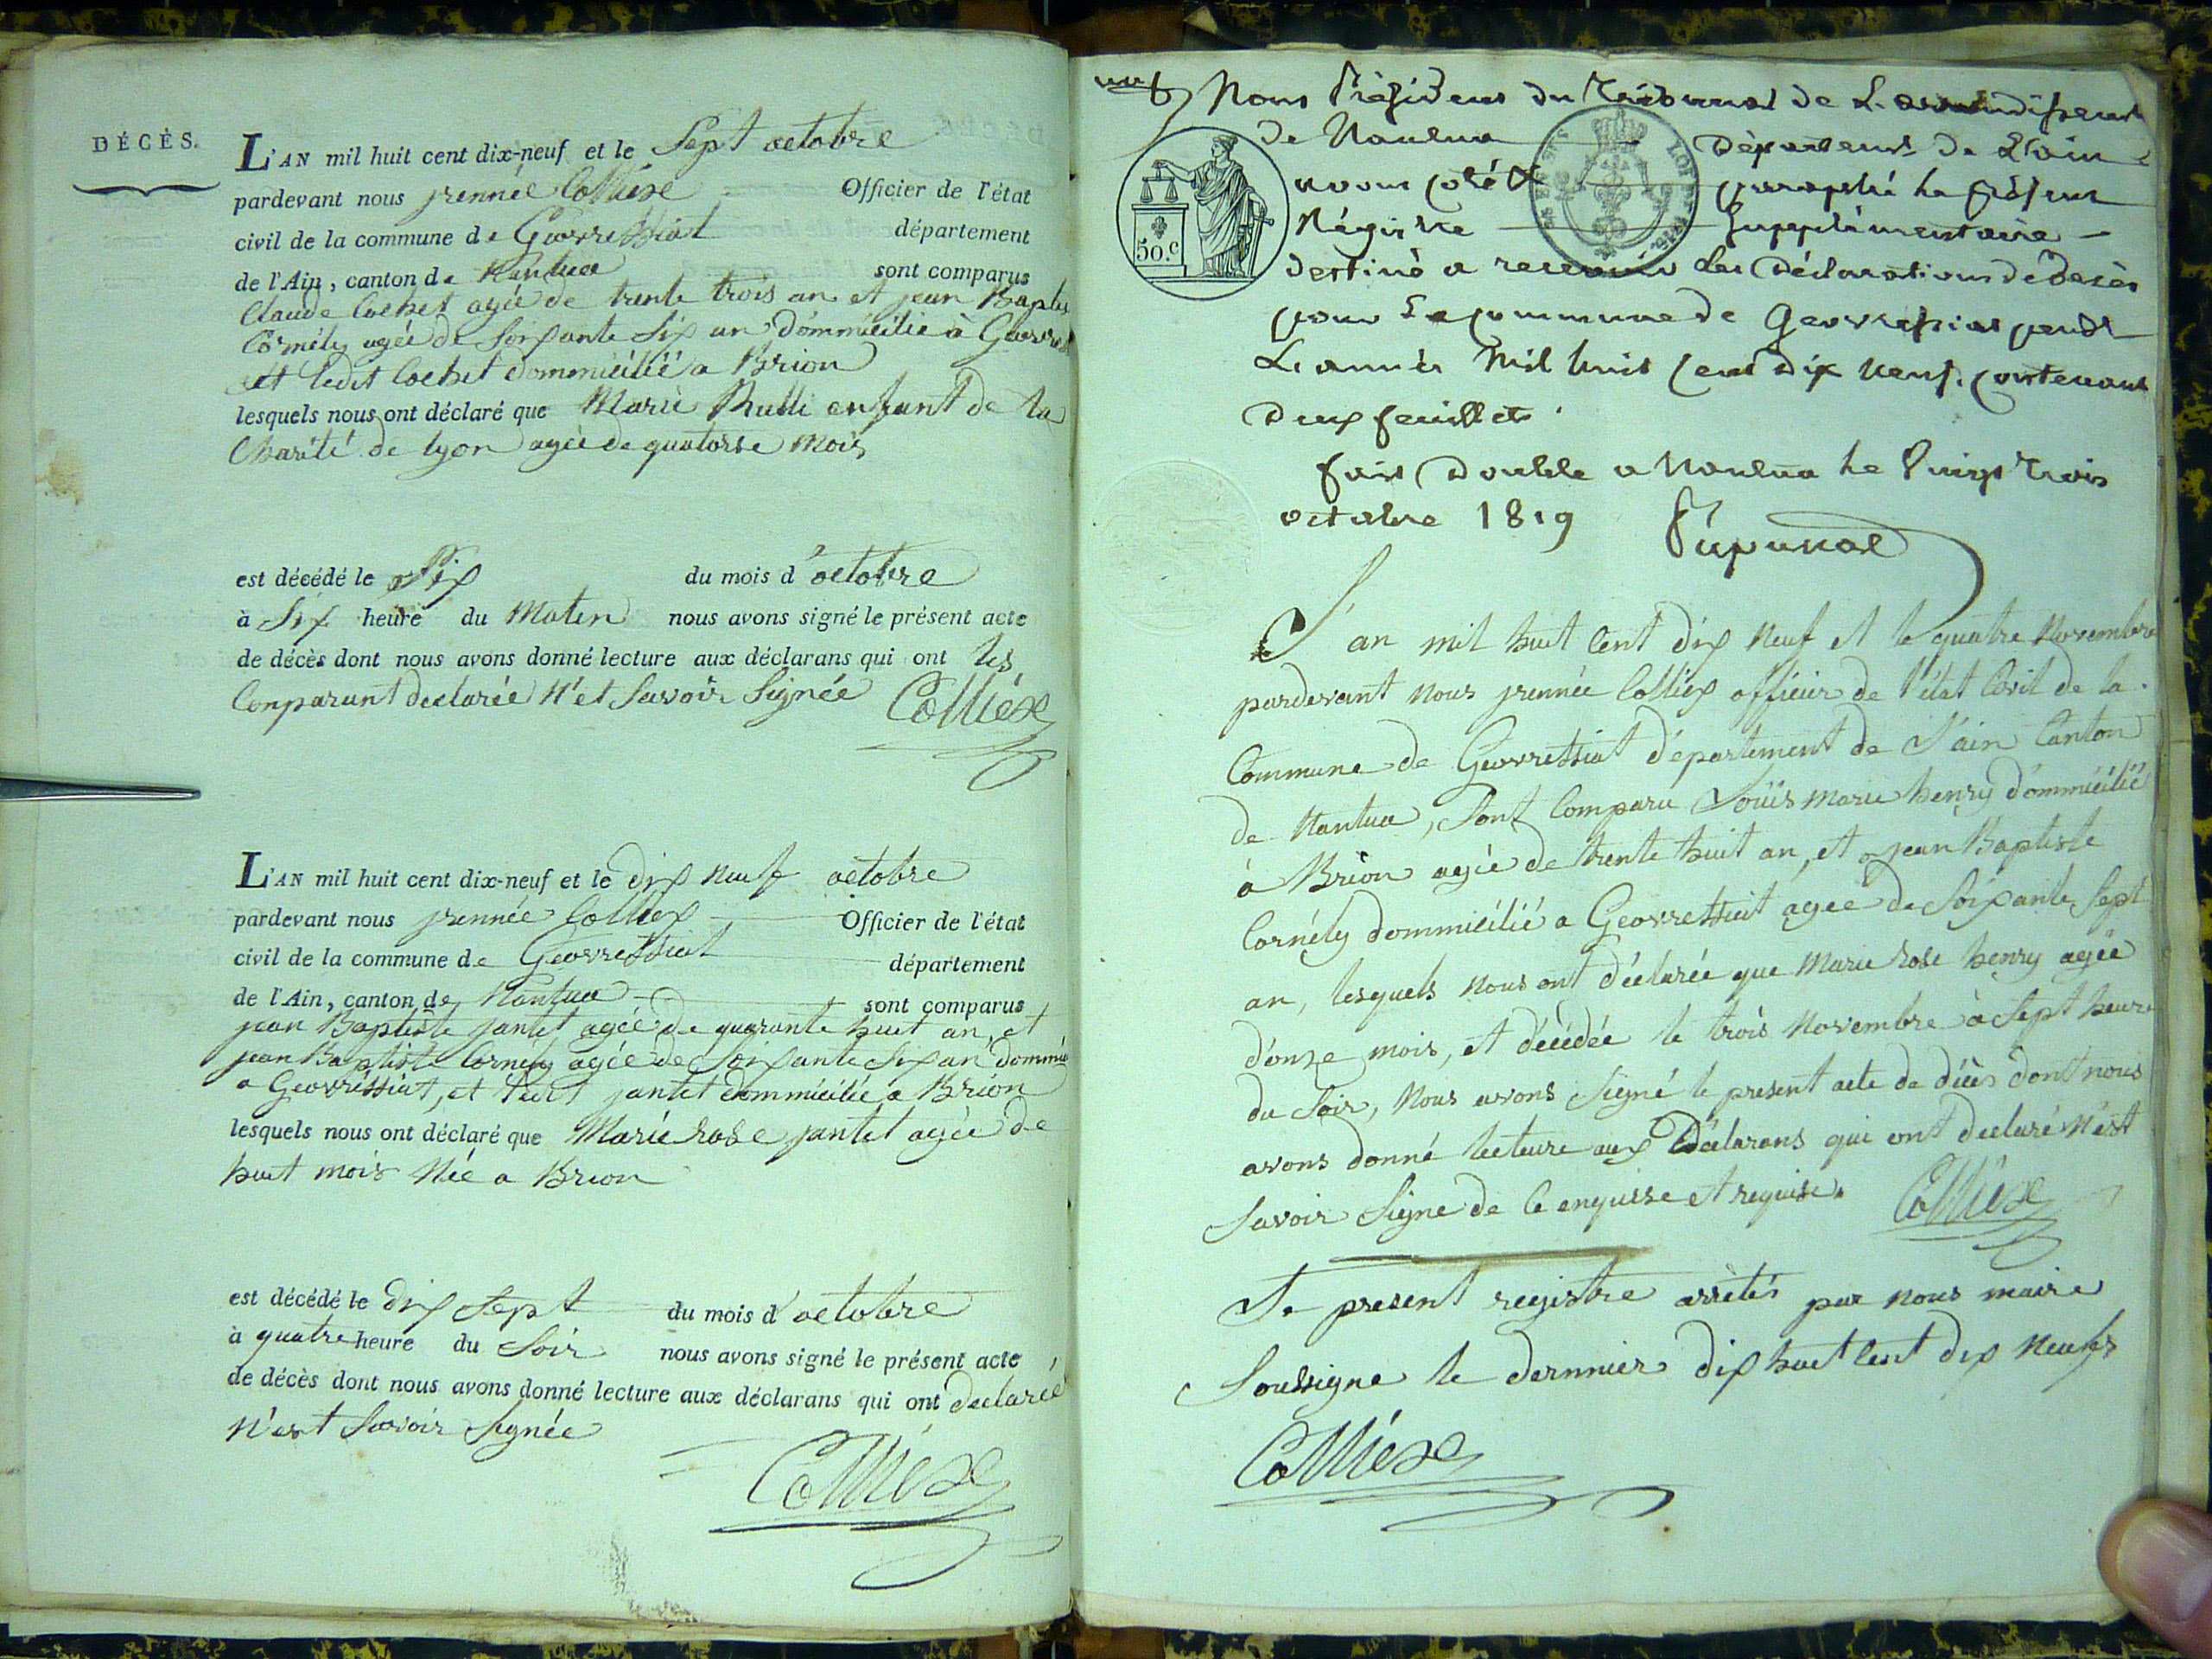 DÉCÈS.
L'AN mil huit cent dix-neuf et le Sept octobre
pardevant nous jrennée Colliéx Officier de l'état
civil de la commune de Géovressiat département
de l'Ain, canton de Nantua sont comparus
Claude Cochet agée de trente trois an et jean Baptis
Cornély agée de Soixante Six an dommicilié à Géovre
et ledit Cochet dommicilié a Brion
lesquels nous ont déclaré que Marie enfant de la
Charité de lyon agée de quatorse Mois
est décédé le Six du mois d'octobre
à Six heure du Maten nous avons signé le présent acte
de décès dont nous avons donné lecture aux déclarans qui ont les
Comparant declarée N'et Savoir Signée Colliéx
L'AN mil huit cent dix-neuf et le dix Neuf octobre
pardevant nous jrennée Colliex Officier de l'état
civil de la commune de Géovressiat département
de l'Ain, canton de Nantua sont comparus
jean Baptiste jantet agée de quarante huit an, et
jean Baptiste Cornély agée de Soixante Six an dommic
a Géovressiat, et ledit jantet dommicilié a Brion
lesquels nous ont déclaré que Marie rose jantet agée de
huit mois Née a Brion
est décédé le dix Sept du mois d'octobre
à quatre heure du Soir nous avons signé le présent acte
de décès dont nous avons donné lecture aux déclarans qui ont declaree
N'est Savoir Signée
Colliéx
Nous Président du Tribunal de L'arrondissement
de Nantua Département de L'ain
50.c avons coté & paraphé le présent
Régistre Supplémentaire
destiné a recevoir les Déclarations de décès
pour La commune de Geovressiat pendt
L'année Mil huit Cent Dix Neuf. contenant
Deux feuillets.
fait Double a Nantua le Vingt trois
octobre 1819
L'an mil huit Cent dix Neuf et le quatre Novembre
pardevant Nous jrennée Colliex officier de l'état Civil de la
Commune de Géovressiat département de l'ain Canton
de Nantua, Sont Comparu Loüis marie henry dommicilié
à Brion agée de trente huit an, et jean Baptiste
Cornély dommicilié a Geovressiat agée de Soixante Sept
an, lesquels Nous ont déclarée que Marie rose henry agée
d'onze mois, et décédée le trois Novembre à Sept heure
du Soir, Nous avons Signé le present acte de décès dont nous
avons donné lecture aux Déclarans qui ont declaré N'est
Savoir Signe de Ce enquisse et requise. Colliéx
Le present registre arrètés par nous maire
Soussigne le dernnier dix huit cent dix Neufs
Colliéx